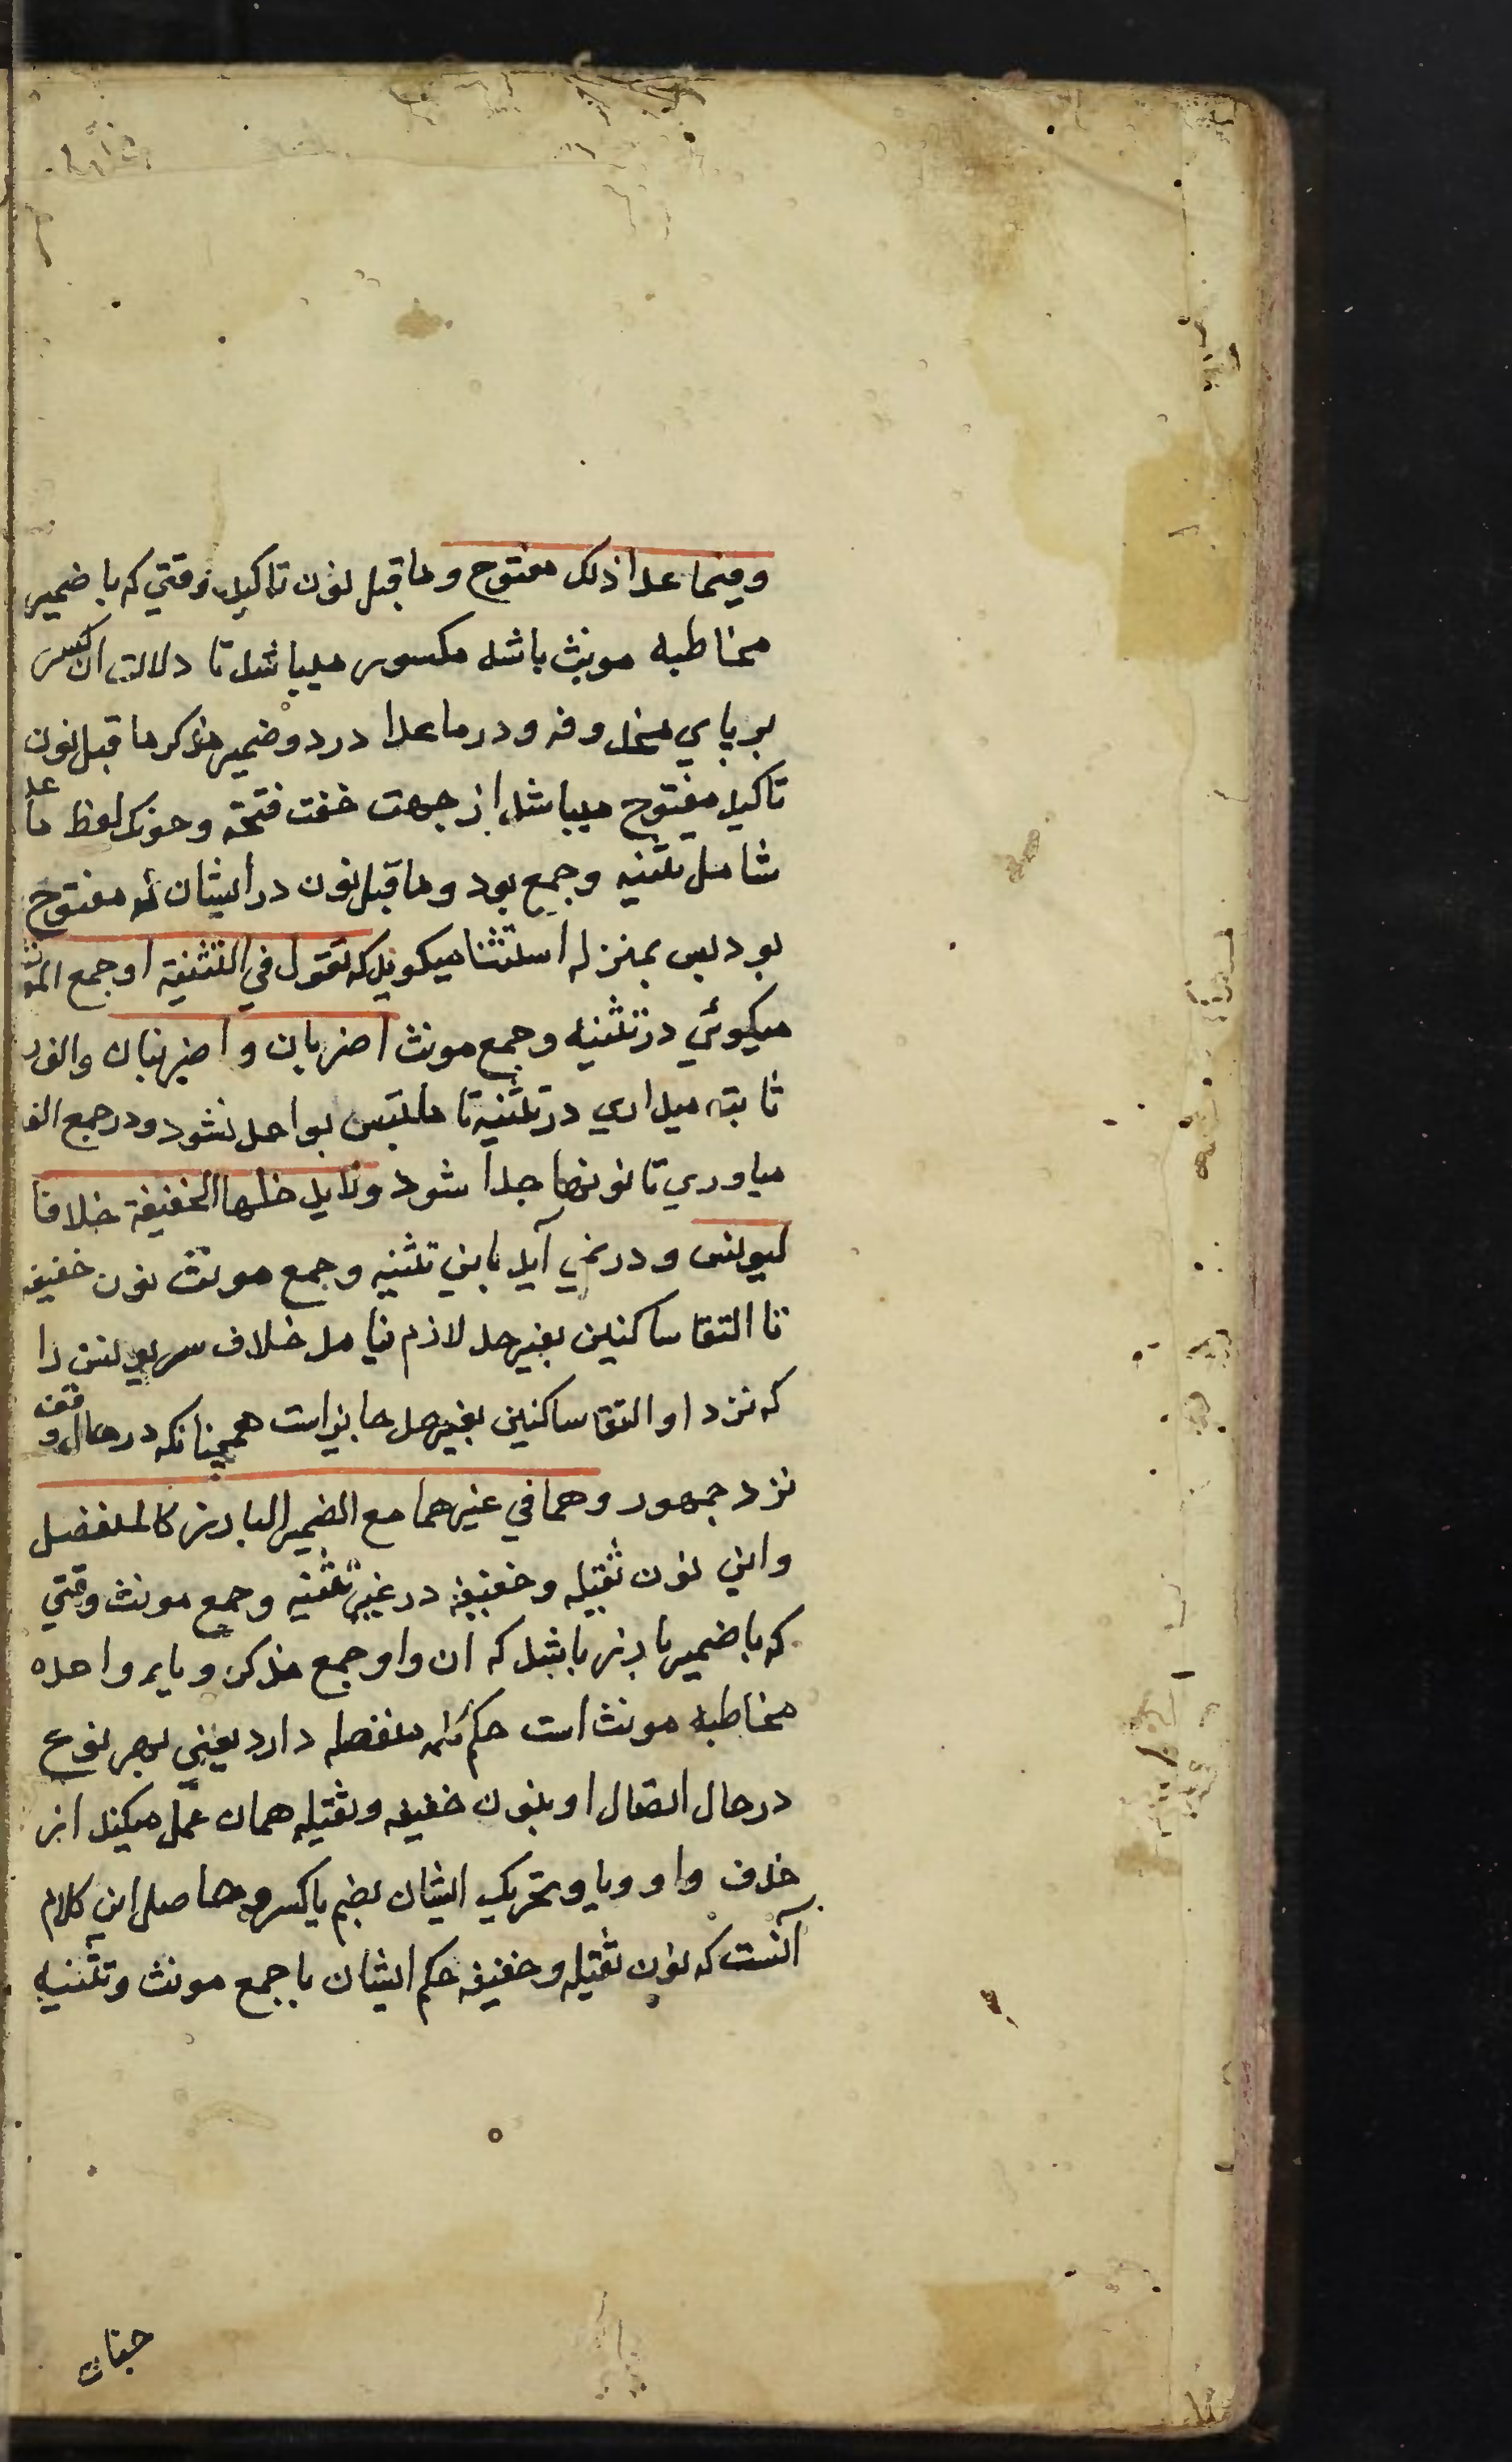 وفيما عدا ذلك مفتوح وما قبل نون تاكيد وقتي كه با ضمير
مخاطبه مونث باشد مكسور ميباشد تا دلالت ان كسر
بر ياي محذوفه ودر ما عدا در دو ضمير مذكر ما قبل نون
تاكيد مفتوح ميباشد از جهت خفت فتحه وچونك لفظ ما عد
شامل تثنيه وجمع بود وما قبل نون در ايشان نه مفتوح
بود پس بمنزله استثنا ميكويد كه تقول في التثنية او جمع المونث
ميكوئي در تثنيه وجمع مونث اضربان و اضربنان والف را
ثابته ميداري در تثنيه تا ملتبس بواحد نشود ودر جمع الف
مياوري تا نونها جدا شود ولا يدخلها الخفيفة خلافا
ليونس و در نمي آيد باين تثنيه وجمع مونث نون خفيفه
تا التقا ساكنين بغير حد لازم نيامد خلاف مر يونس را
كه نزد او التقا ساكنين بغير حد جايز است همچنانكه در حال وقف
نزد جمهور وهما في غيرهما مع الضمير البارز كالمنفصل
واين نون ثقيله وخفيفه در غير تثنيه وجمع مونث وقتي
كه با ضمير بارز باشد كه ان واو جمع مذكر وياء واحده
مخاطبه مونث است حكم كلمه منفصله دارد يعني بهر نوع
در حال اتصال او بنون خفيفه وثقيله همان عمل ميكند از
حذف واو ويا وتحريك ايشان بضم يا كسر وحاصل اين كلام
آنست كه نون ثقيله وخفيفه حكم ايشان با جمع مونث وتثنيه